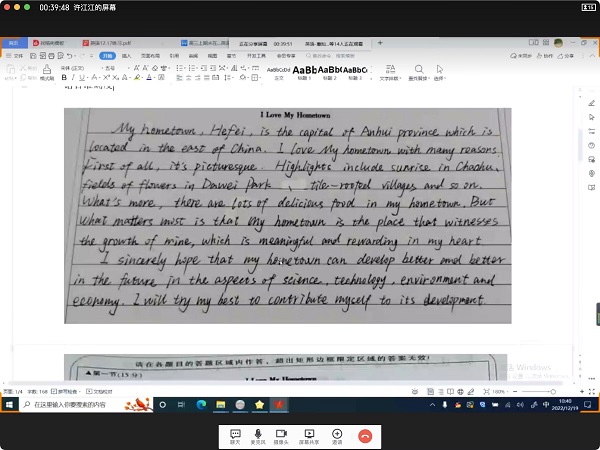 00:39:48 许江江的屏幕
首页
正在共享屏幕 00:39:51
文件
开始
插入
页面布局
引用
审阅
视图
章节
开发工具
会员专享
AaBbCcDd
AaBb
AaBb(
AaBbC(
I Love My Hometown
My hometown, Hefei, is the capital of Anhui province which is
located in the east of China. I love My hometown with many reasons.
First of all, it's picturesque. Highlights include sunrise in Chaohu,
fields of flowers in Dawei Park 、 tile-roofed villages and so on.
What's more, there are lots of delicious food in my hometown. But
what matters most is that my hometown is the place that witnesses
the growth of mine, which is meaningful and rewarding in my heart.
I sincerely hope that my hometown can develop better and better
in the future in the aspects of science, technology, environment and
economy. I will try my best to contribute myself to its development
请在各题目的答题区域内作答，超出矩形边框限定区域的答案无效!
▲第一节(15分)
I Love My Hometown
激活 Windows
页面: 1/4 字数: 168 拼写检查 文档校对
180%
在这里输入你要搜索的内容
中
10:40
2022/12/19
聊天
麦克风
摄像头
屏幕共享
邀请